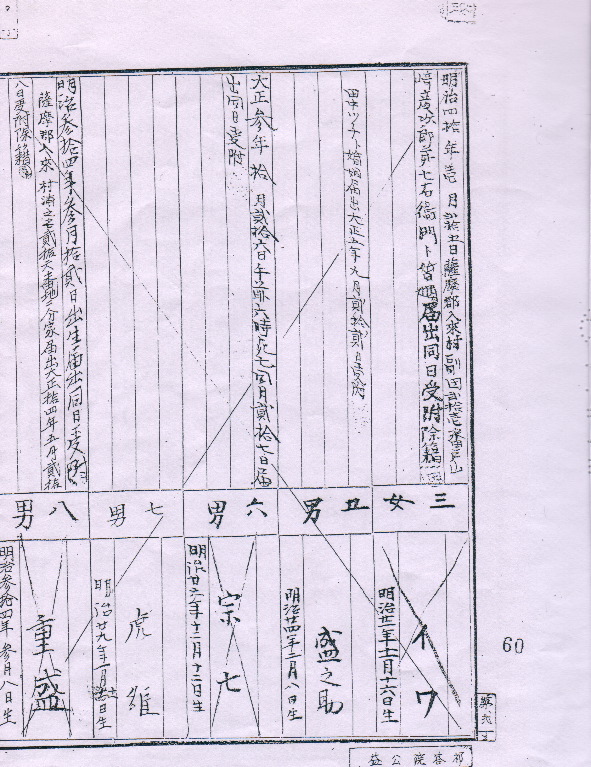 明治四拾年壱月弐拾五日薩摩郡入来村副田
﨑慶次郎弟七右衛門ト婚姻届出同日受附除籍
三女
イワ
明治廿一年十一月十六日生
田中ツチト婚姻届出大正五年九月貳拾貳日受附
五男
盛之助
明治廿四年二月八日生
大正参年拾月貳拾六日午前六時死亡同月貳拾七日届
出同日受附
六男
宗七
明治廿六年十二月十二日生
七男
虎雄
明治廿九年
日生
明治参拾四年参月拾貳日出生届出同日受附
薩摩郡入来村浦之名貳拾
番地ニ分家届出大正拾四年五月貳拾
八日受附除籍
八男
重盛
明治参拾四年参月八日生
60